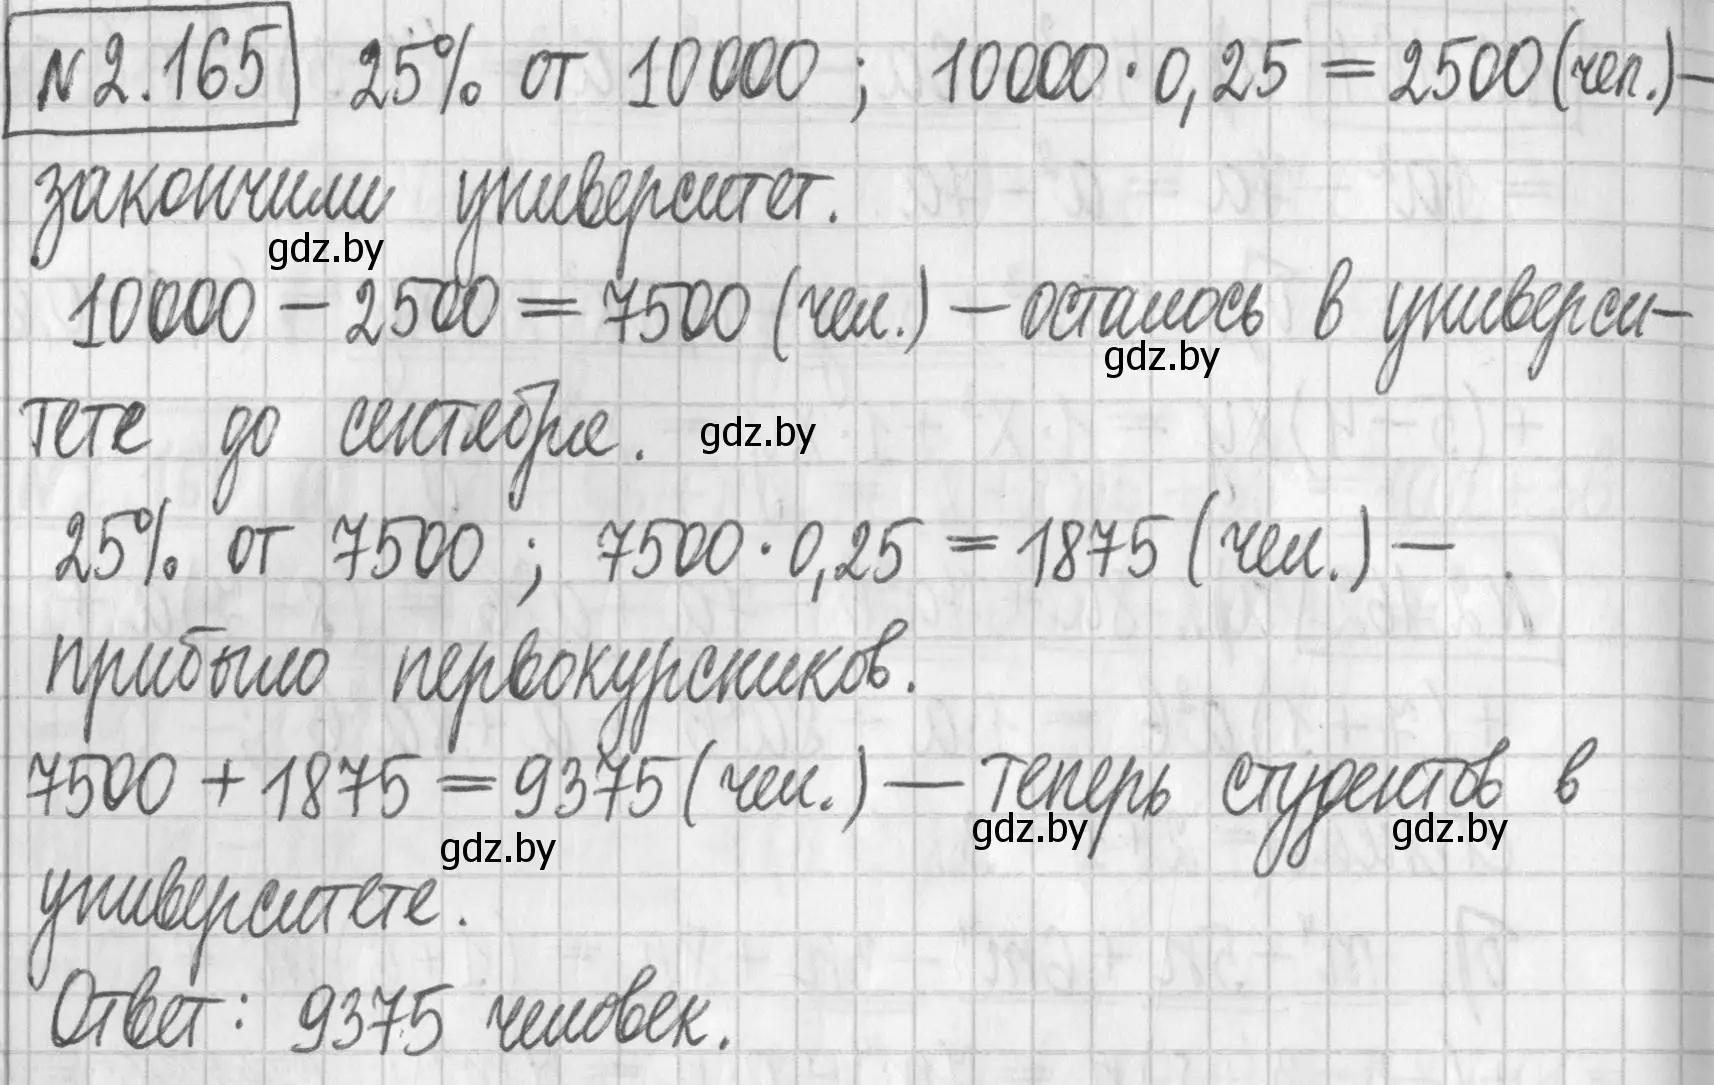 №2.165 25% от 10000 ; 10000 · 0,25 = 2500 (чел.) –
закончили университет.
gdz.by
10000 – 2500 = 7500 (чел.) – осталось в универси-
gdz.by
тете до сентября.
gdz.by
25% от 7500 ; 7500 · 0,25 = 1875 (чел.) –
прибыло первокурсников.
7500 + 1875 = 9375 (чел.) – теперь студентов в
gdz.by gdz.by gdz.by
университете.
Ответ: 9375 человек.